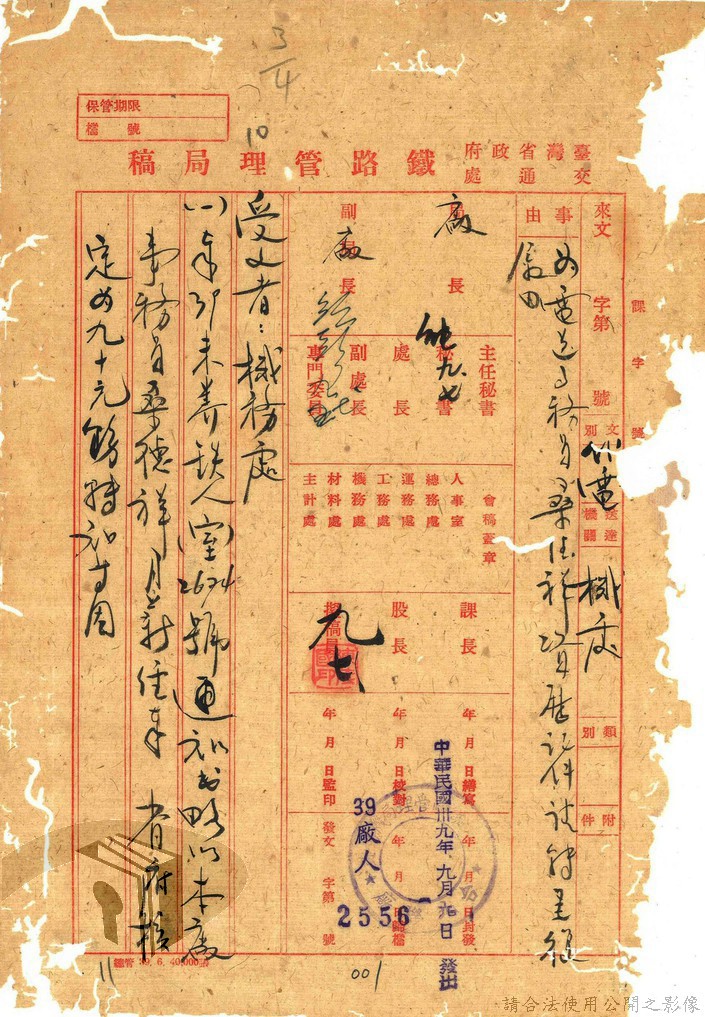 3/4
10
保管期限
檔號
臺灣省政府交通處鐵路管理局稿
來文 字第 號
課 字 號
文別
代電
送達機關
機處
類別
附件
事由
為電送事務員桑德祥資歷證件請轉呈
局長
廠
副局長
主任秘書
秘書
九.七
處長
副處長
專門委員
會稿蓋章
人事室
總務處
運務處
工務處
機務處
材料處
主計處
課長
股長
擬稿員
九七
年 月 日繕寫
年 月 日校對
年 月 日監印
年 月 日封發
年 月 日歸檔
發文 字第 號
中華民國卅九年九月九日 發出
39廠人
2556
受文者:機務處
(一)奉鈞未養鐵人(室)2674號通知書略以本廠
事務員桑德祥月薪經奉 省府核
定為九十元飭轉知等因
總管 39. 6. 40,000
001
請合法使用公開之影像